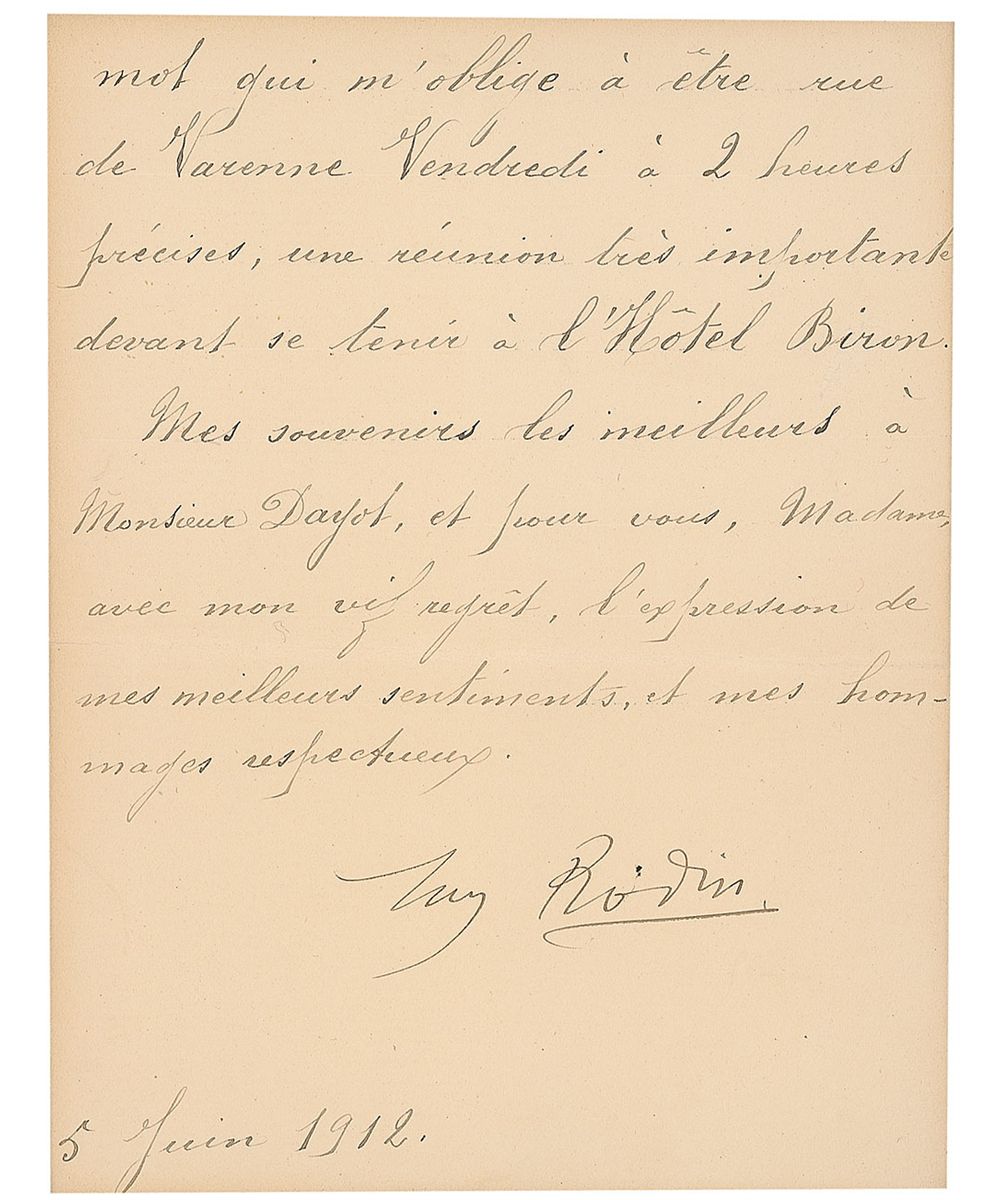 mot qui m'oblige à être rue
de Varenne Vendredi à 2 heures
précises, une réunion très importante
devant se tenir à l'Hôtel Biron.
Mes souvenirs les meilleurs à
Monsieur Dayot, et pour vous, Madame,
avec mon vif regrêt, l'expression de
mes meilleurs sentiments, et mes hom-
mages respectueux.
Aug Rodin
5 Juin 1912.